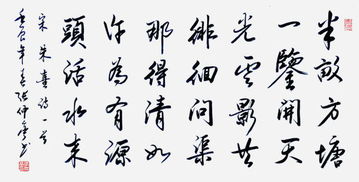 半畝方塘
一鑒開天
光雲影共
徘徊問渠
那得清如
許為有源
頭活水來
宋朱熹詩一首
壬辰年